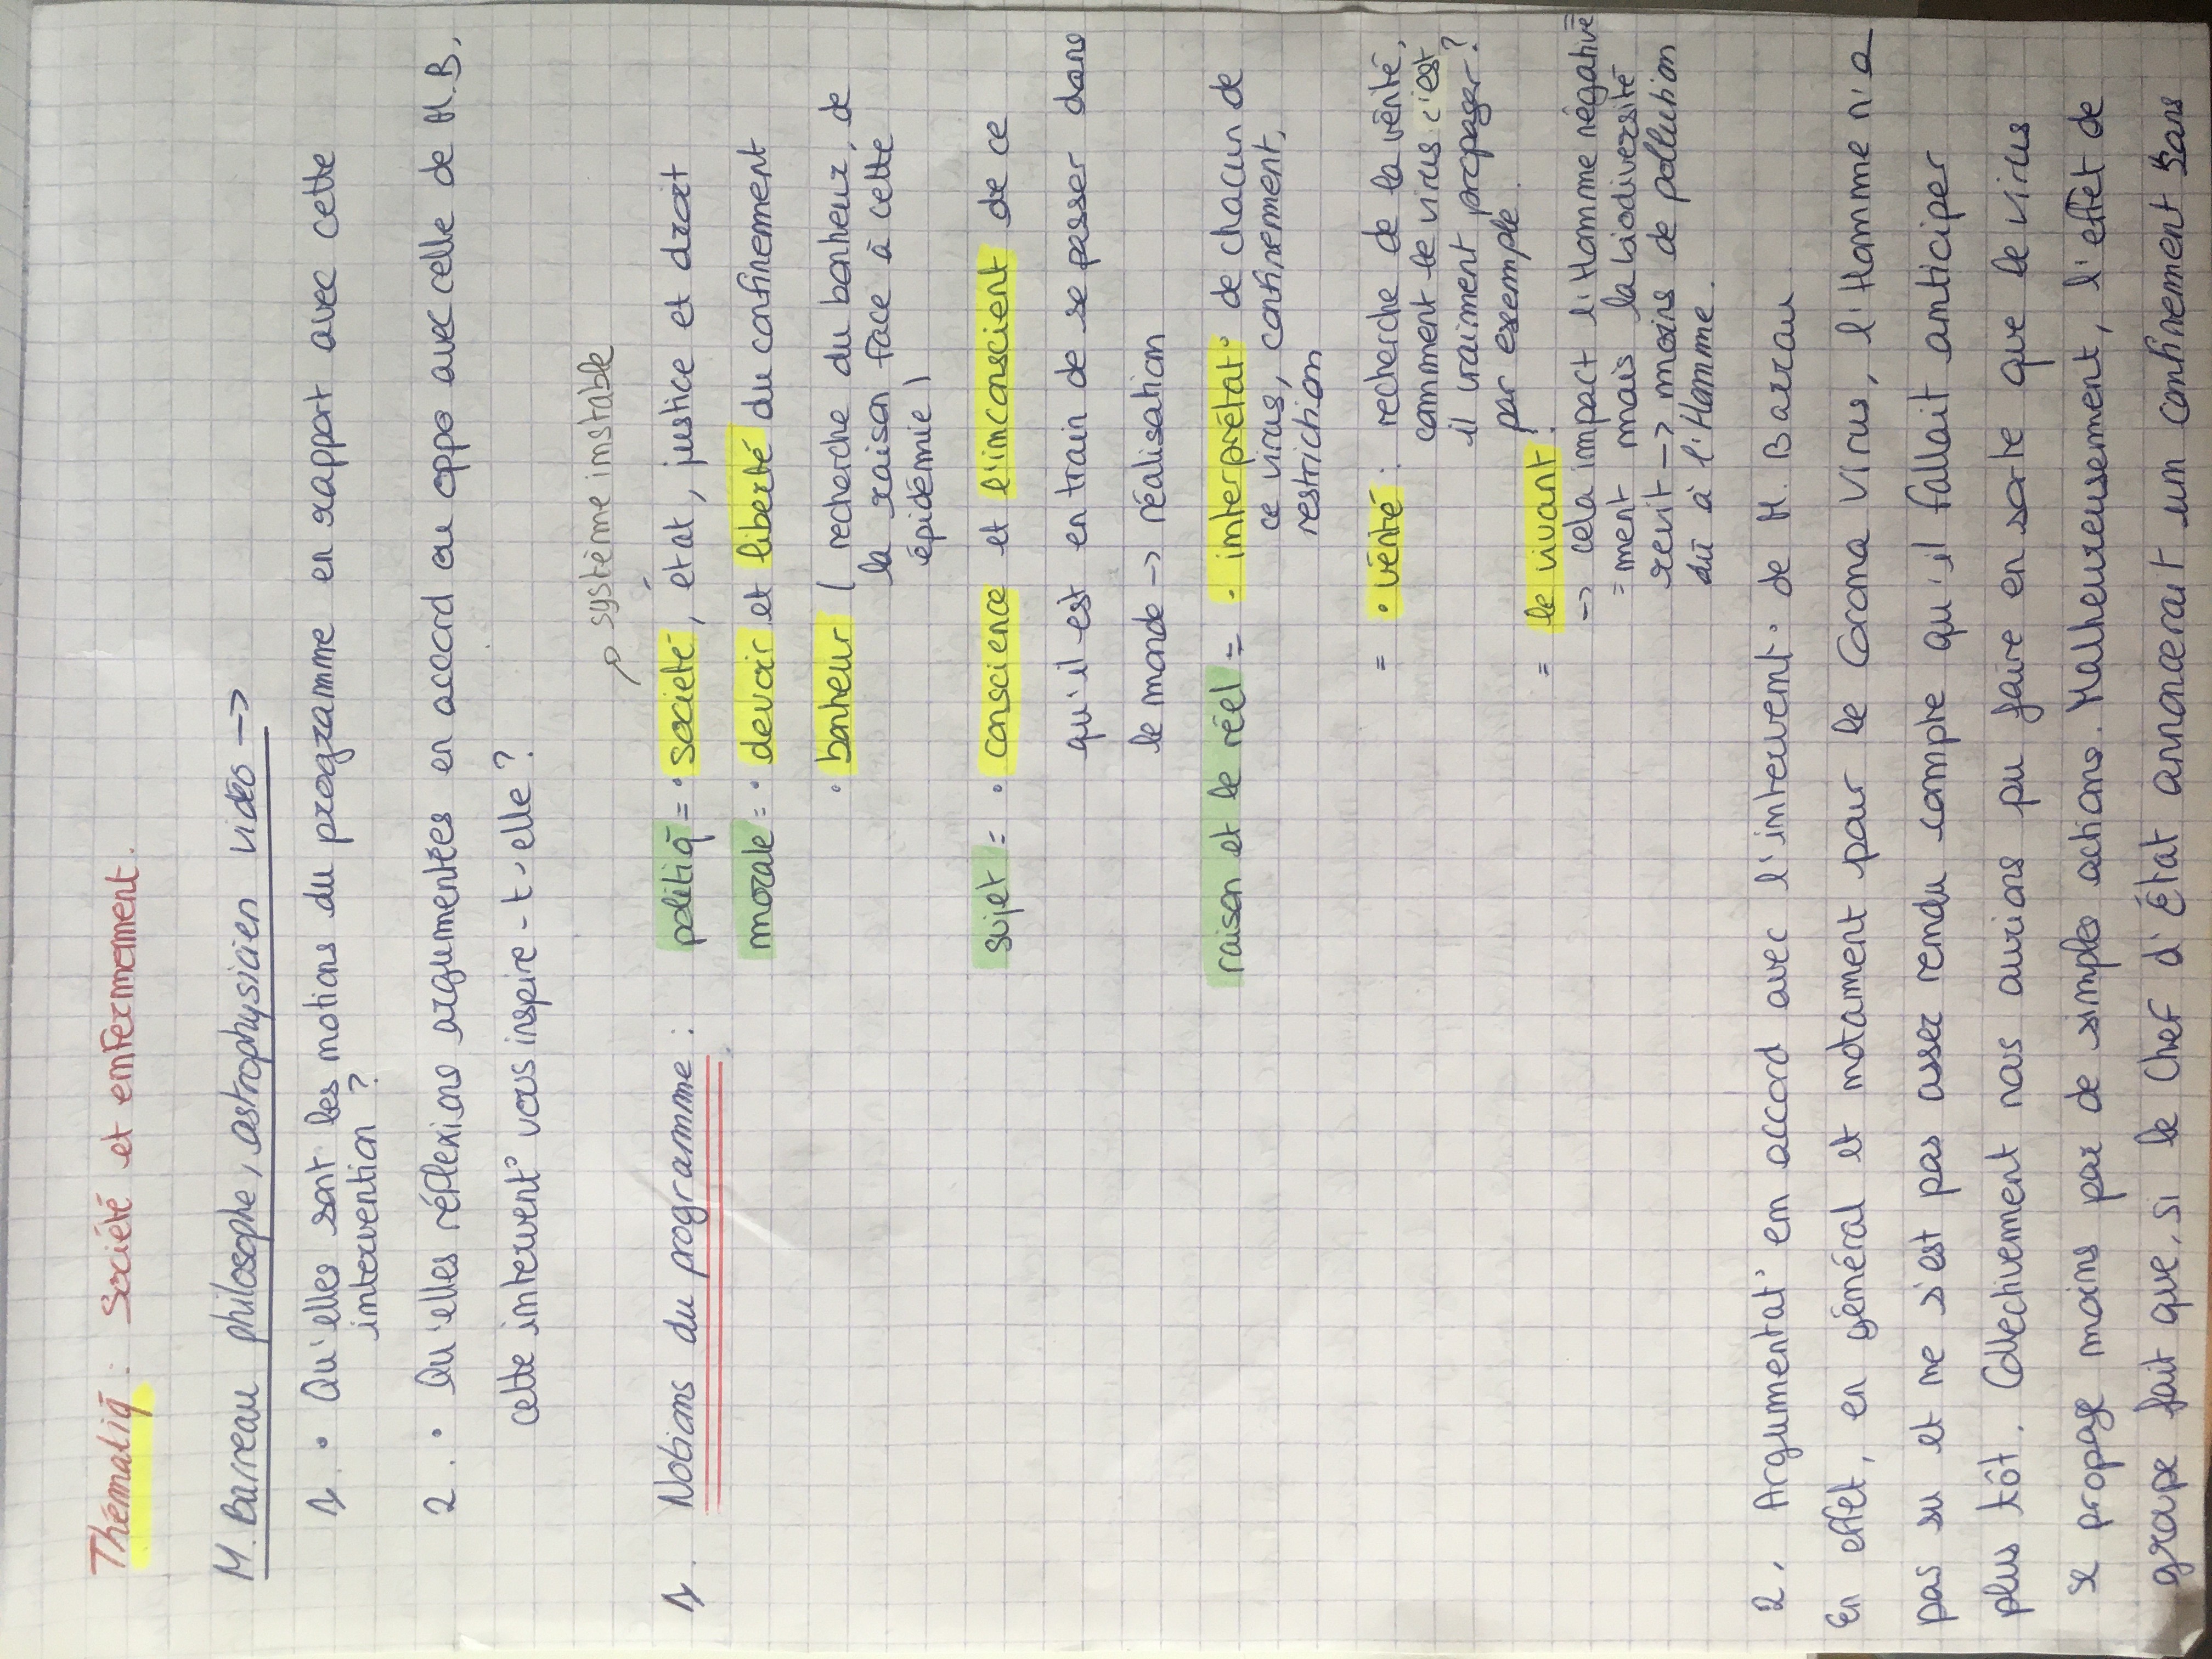 Thématiq : Société et enfermement.
M. Barreau philosophe, astrophysicien vidéo ->
1. • Qu'elles sont les notions du programme en rapport avec cette
intervention ?
2. • Qu'elles réflexions argumentées en accord ou oppo avec celle de M.B,
cette intervent° vous inspire-t'elle ?
système instable
1. Notions du programme : politiq = • société, état, justice et droit
morale = • devoir et liberté du confinement
• bonheur ( recherche du bonheur, de
la raison face à cette
épidémie)
sujet = • conscience et l'inconscient de ce
qu'il est en train de se passer dans
le monde -> réalisation
raison et le réel = • interprétat° de chacun de
ce virus, confinement,
restrictiion
= • vérité : recherche de la vérité,
comment le virus c'est
il vraiment propager ?
par exemple.
= le vivant :
-> cela impact l'Homme négative
= ment mais la biodiversité
revit -> moins de pollution
dû à l'Homme.
2. Argumentat° en accord avec l'intervent° de M. Barrau
En effet, en général et notament par le Corona Virus, l'Homme n'a
pas su et ne s'est pas assez rendu compte qu'il fallait anticiper
plus tôt. Collectivement nous aurions pu faire en sorte que le virus
se propage moins par de simples actions. Malheureusement, l'effet de
groupe fait que, si le Chef d'État annoncerait un confinement sans